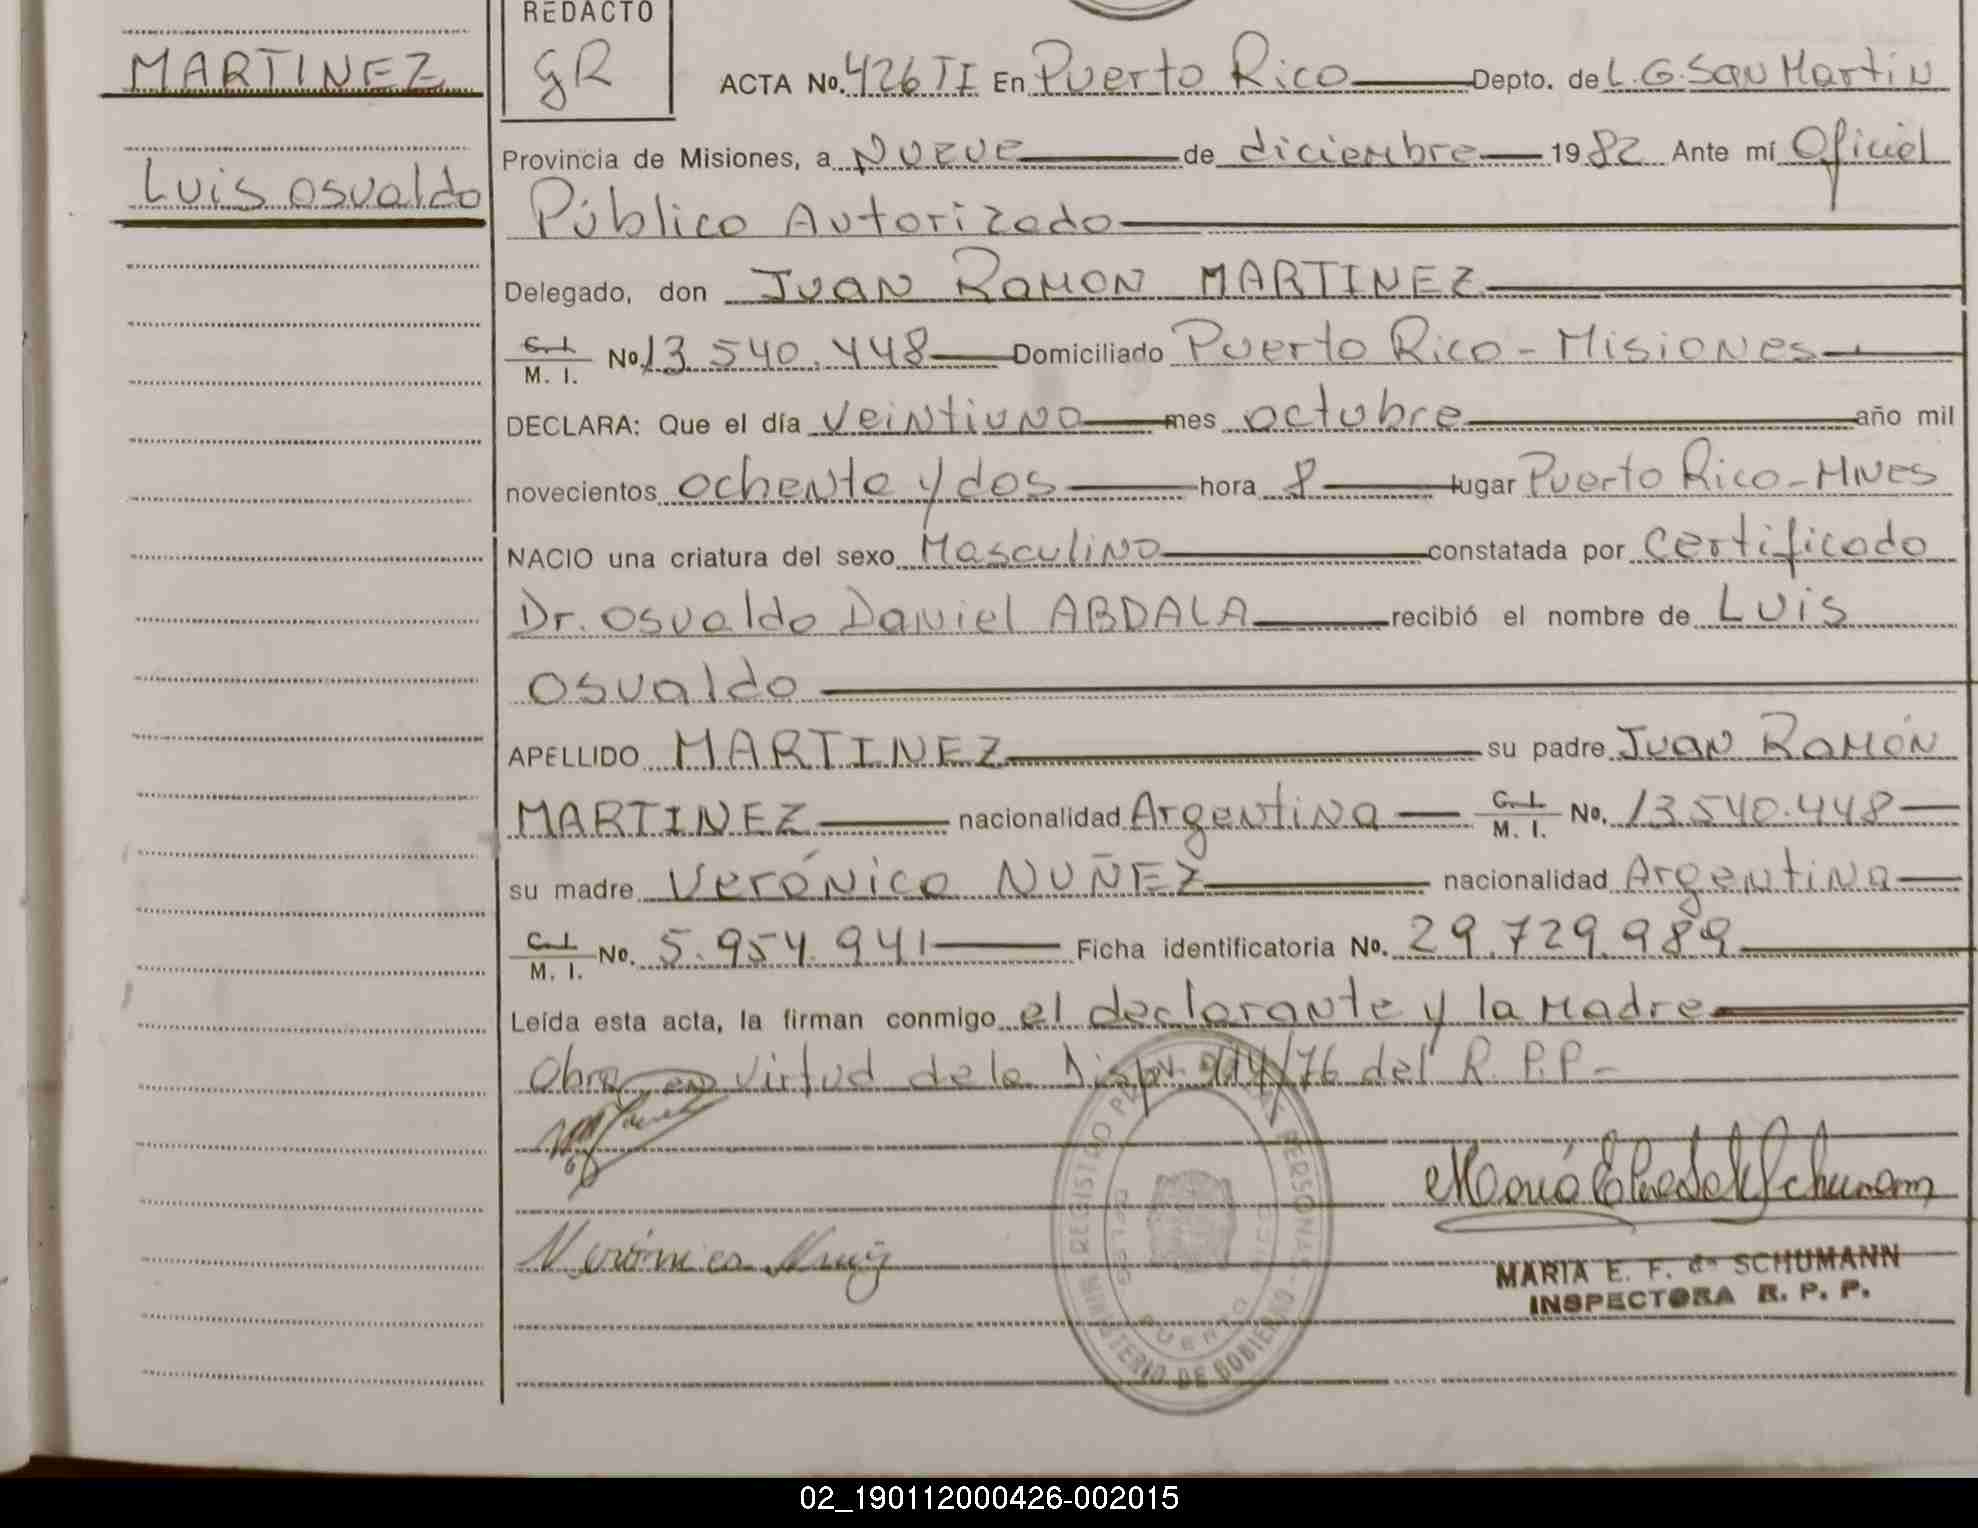 REDACTO
MARTINEZ
gR
ACTA No. 426 TI En Puerto Rico Depto. de L.G. San Martin
Luis Osvaldo
Provincia de Misiones, a nueve de diciembre 1982 Ante mí Oficial
Público Autorizado
Delegado, don JUAN RAMON MARTINEZ
C. I. / M. I. No. 13.540.448 Domiciliado Puerto Rico - Misiones
DECLARA: Que el día veintiuno mes octubre año mil
novecientos ochenta y dos hora 8 lugar Puerto Rico - Mnes
NACIO una criatura del sexo Masculino constatada por certificado
Dr. Osvaldo Daniel ABDALA recibió el nombre de Luis
Osvaldo
APELLIDO MARTINEZ su padre Juan Ramón
MARTINEZ nacionalidad Argentina C. I. / M. I. No. 13.540.448
su madre Verónica NUÑEZ nacionalidad Argentina
C. I. / M. I. No. 5.954.941 Ficha identificatoria No. 29.729.989
Leída esta acta, la firman conmigo el declarante y la madre
Obra en virtud de la Disp. 914/76 del R.P.P.-
MINISTERIO DE GOBIERNO - REGISTRO PERSONAS
PUERTO RICO
MARIA E. F. de SCHUMANN
INSPECTORA R. P. P.
02_190112000426-002015